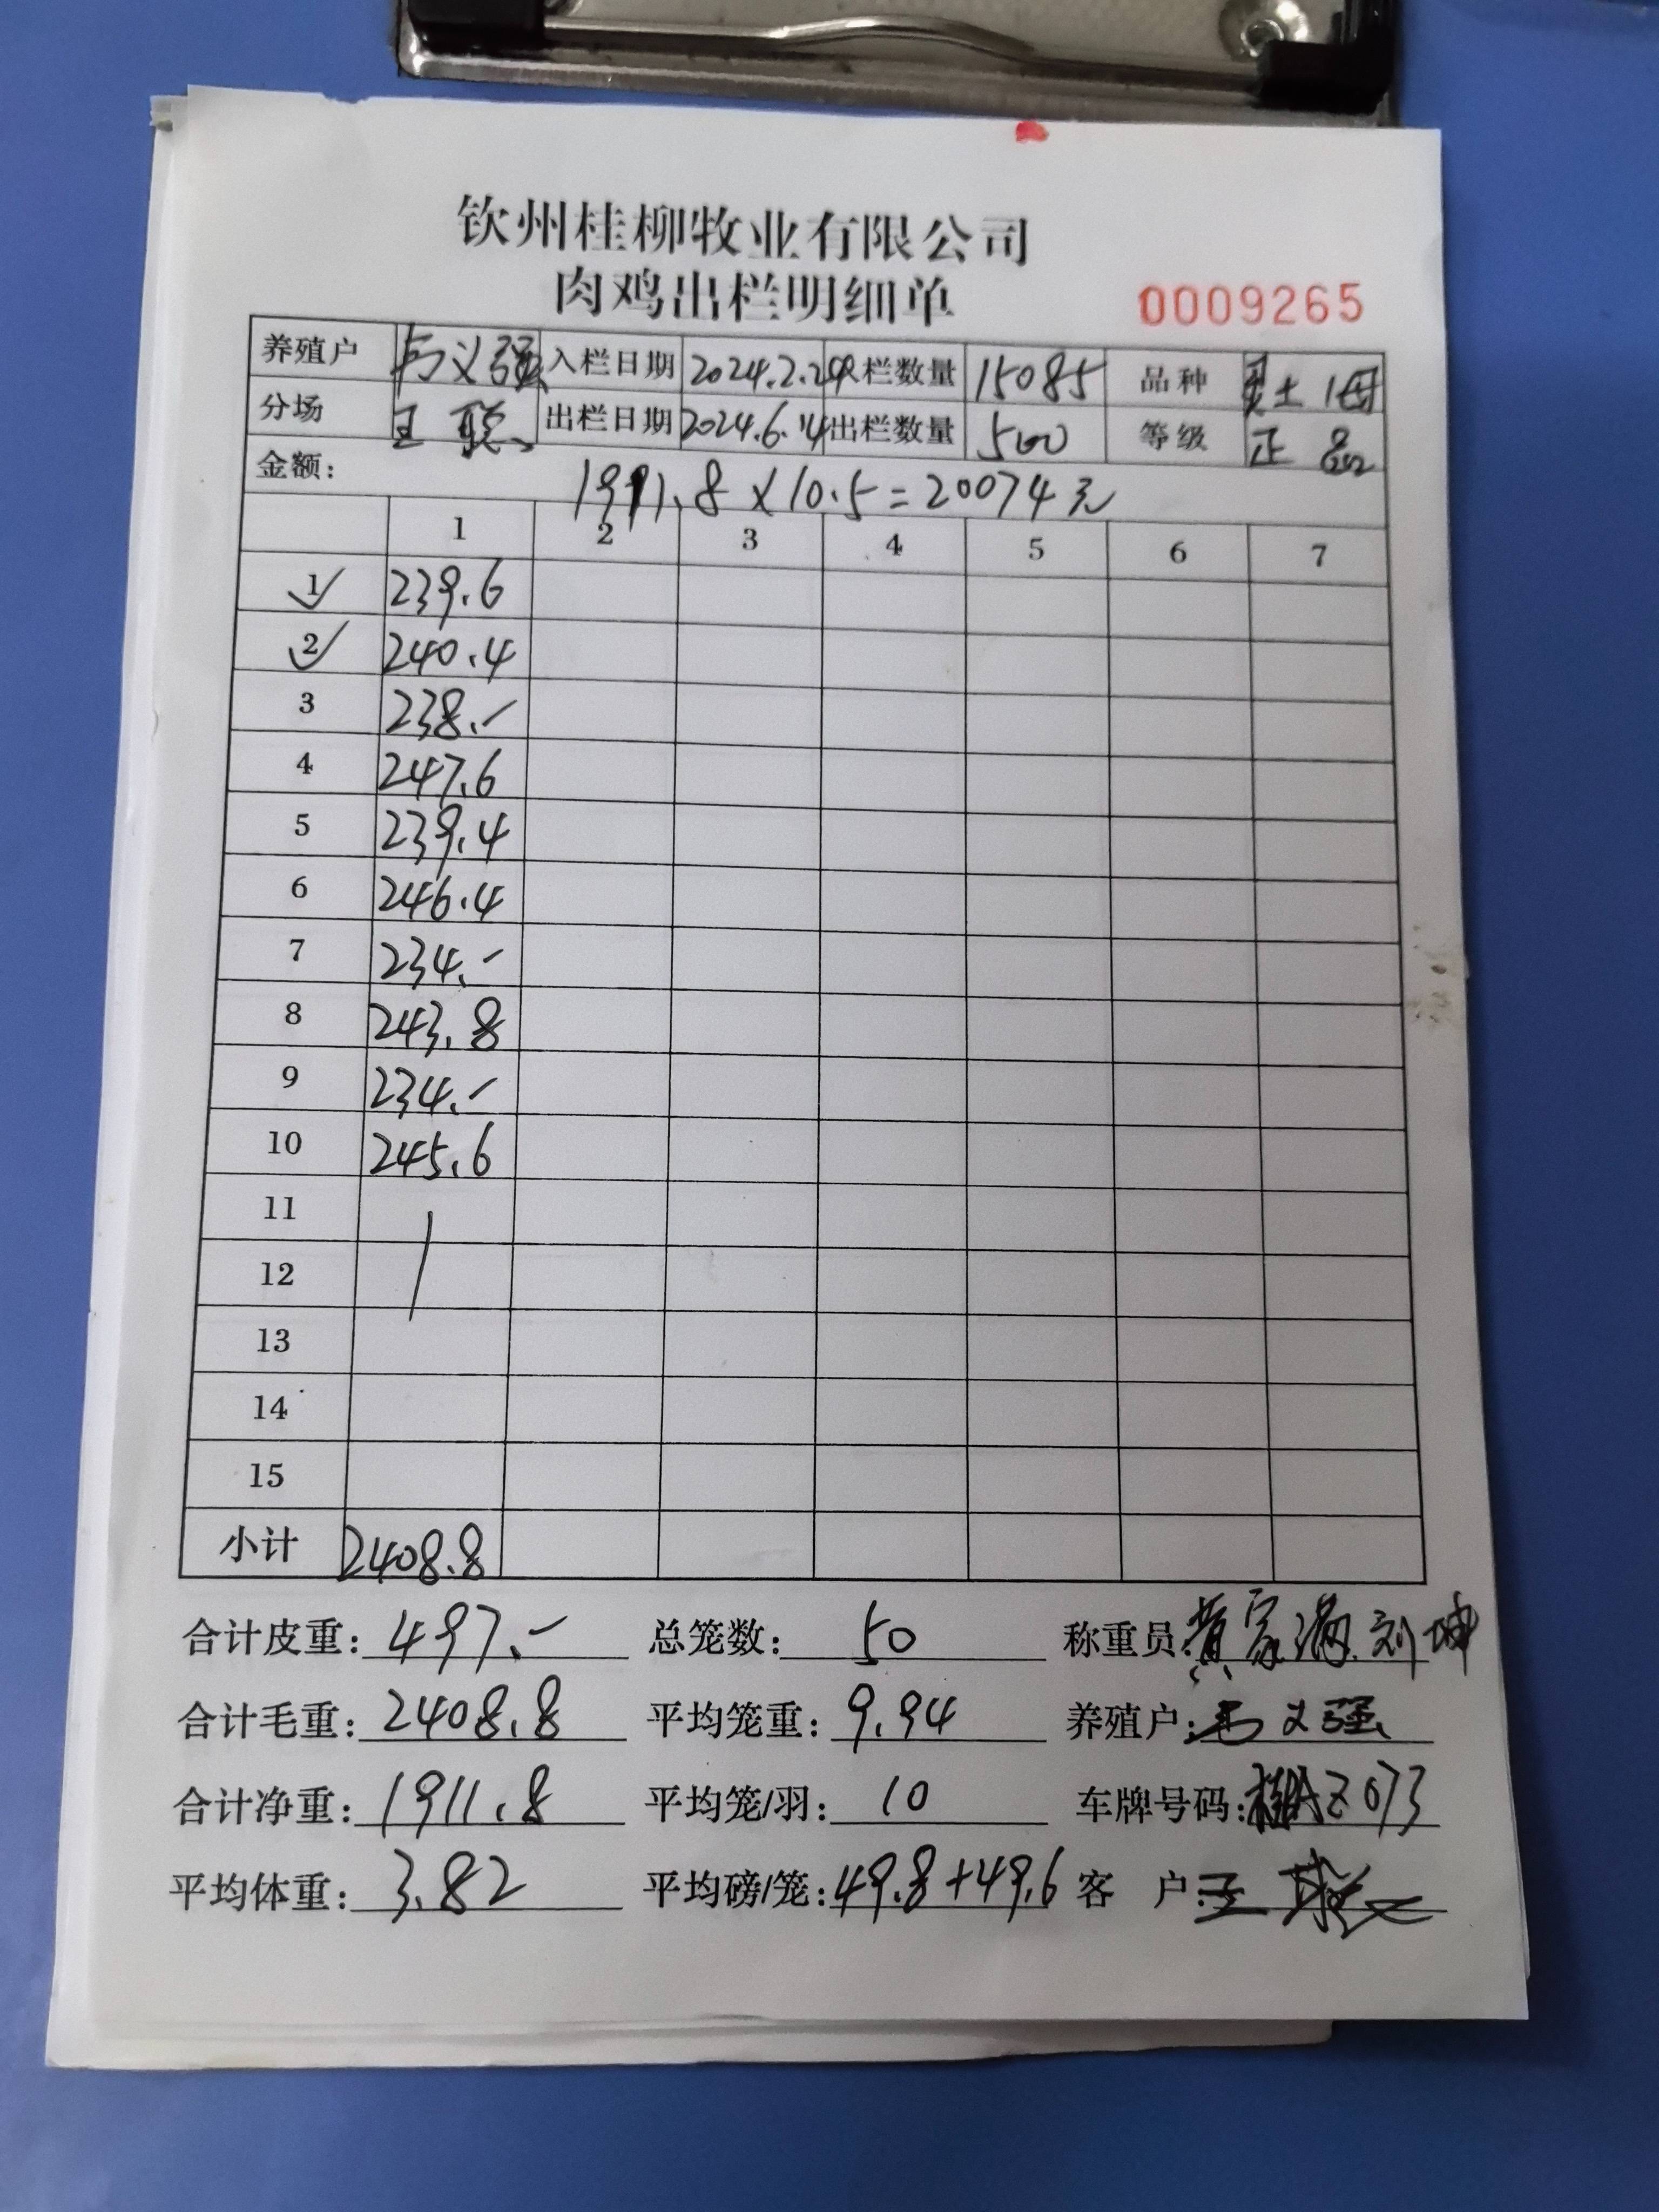 钦州桂柳牧业有限公司
肉鸡出栏明细单 0009265
养殖户 义强 入栏日期 2024.2.29 入栏数量 15085 品种 土1母
分场 王聪 出栏日期 2024.6.14 出栏数量 500 等级 正品
金额: 1911.8×10.5=20074元
1 2 3 4 5 6 7
1 239.6
2 240.4
3 238.-
4 247.6
5 239.4
6 246.4
7 234.-
8 243.8
9 234.-
10 245.6
11
12
13
14
15
小计 2408.8
合计皮重: 497.- 总笼数: 50 称重员: 黄家满.刘坤
合计毛重: 2408.8 平均笼重: 9.94 养殖户: 义强
合计净重: 1911.8 平均笼/羽: 10 车牌号码: 桂AZ073
平均体重: 3.82 平均磅/笼: 49.8+49.6 客户: 王